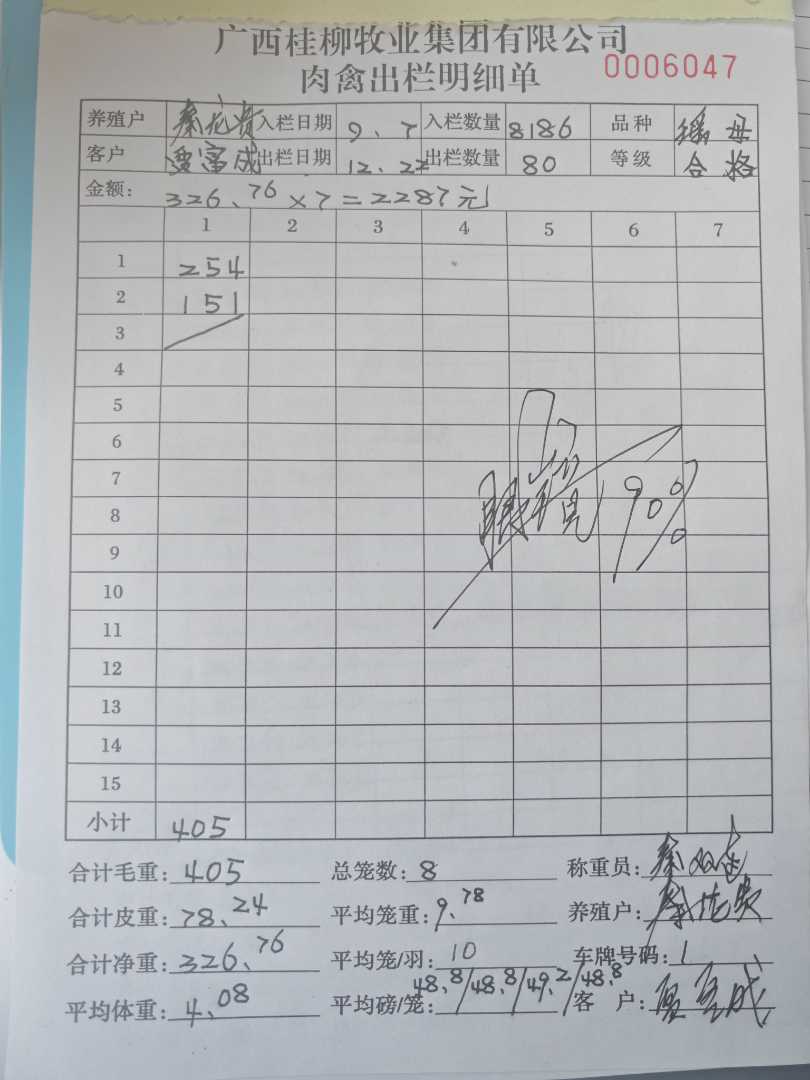 广西桂柳牧业集团有限公司
肉禽出栏明细单 0006047
养殖户 秦龙贵 入栏日期 9、7 入栏数量 8186 品种 母
客户 成 出栏日期 12、27 出栏数量 80 等级 合格
金额: 326、76×7=2287元
1 2 3 4 5 6 7
1 254
2 151
3
4
5
6
7
8 90%
9
10
11
12
13
14
15
小计 405
合计毛重: 405 总笼数: 8 称重员: 秦
合计皮重: 78、24 平均笼重: 9、78 养殖户: 秦龙贵
合计净重: 326、76 平均笼/羽: 10 车牌号码: 1
平均体重: 4、08 平均磅/笼: 48、8/48、8/49、2/48、8 客户: 成